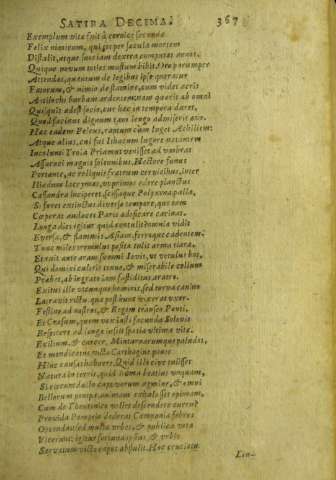 SATIRA DECIMA. 367
Exemplum vitæ fuit à cornice secundæ.
Felix nimirum, qui tot per sæcula mortem
Distulit, atque suos iam dextra computat annos,
Quique novum toties mustum bibit. Oro parumper
Attendas, quantum de legibus ipse queratur
Fatorum, & nimio de stamine, cum videt acris
Antilochi barbam ardentem: nam quærit ab omni
Quisquis adest socio, cur hæc in tempora duret,
Quod facinus dignum tam longo admiserit ævo.
Hæc eadem Peleus, raptum cum luget Achillem:
Atque alius, cui fas Ithacum lugere natantem
Incolumi Troia Priamus venisset ad umbras
Assaraci magnis solemnibus, Hectore funus
Portante, ac reliquis fratrum cervicibus, inter
Iliadum lacrymas, ut primos edere planctus
Cassandra inciperet, scissaque Polyxena palla,
Si foret extinctus diverso tempore, quo non
Cœperat audaces Paris ædificare carinas.
Longa dies igitur quid contulit? omnia vidit
Eversa, & flammis Asiam, ferroque cadentem.
Tunc miles tremulus posita tulit arma tiara,
Et ruit ante aram summi Iovis, ut vetulus bos,
Qui domini cultris tenue, & miserabile collum
Præbet, ab ingrato iam fastiditus aratro.
Exitus ille utcumque hominis, sed torva canino
Latravit rictu, quæ post hunc vixerat uxor.
Festino ad nostros, & Regem transeo Ponti,
Et Crœsum, quem vox iusti facunda Solonis
Respicere ad longæ iussit spatia ultima vitæ.
Exilium, & carcer, Minturnarumque paludes,
Et mendicatus victa Carthagine panis
Hinc causas habuere. Quid illo cive tulisset
Natura in terris, quid Roma beatius unquam,
Si circumducto captivorum agmine, & omni
Bellorum pompa, animam exhalasset opimam,
Cum de Theutonico vellet descendere curru?
Provida Pompeio dederat Campania febres
Optandas: sed multæ urbes, & publica vota
Vicerunt: igitur fortuna ipsius, & urbis
Servatum victo caput abstulit. Hoc cruciatu